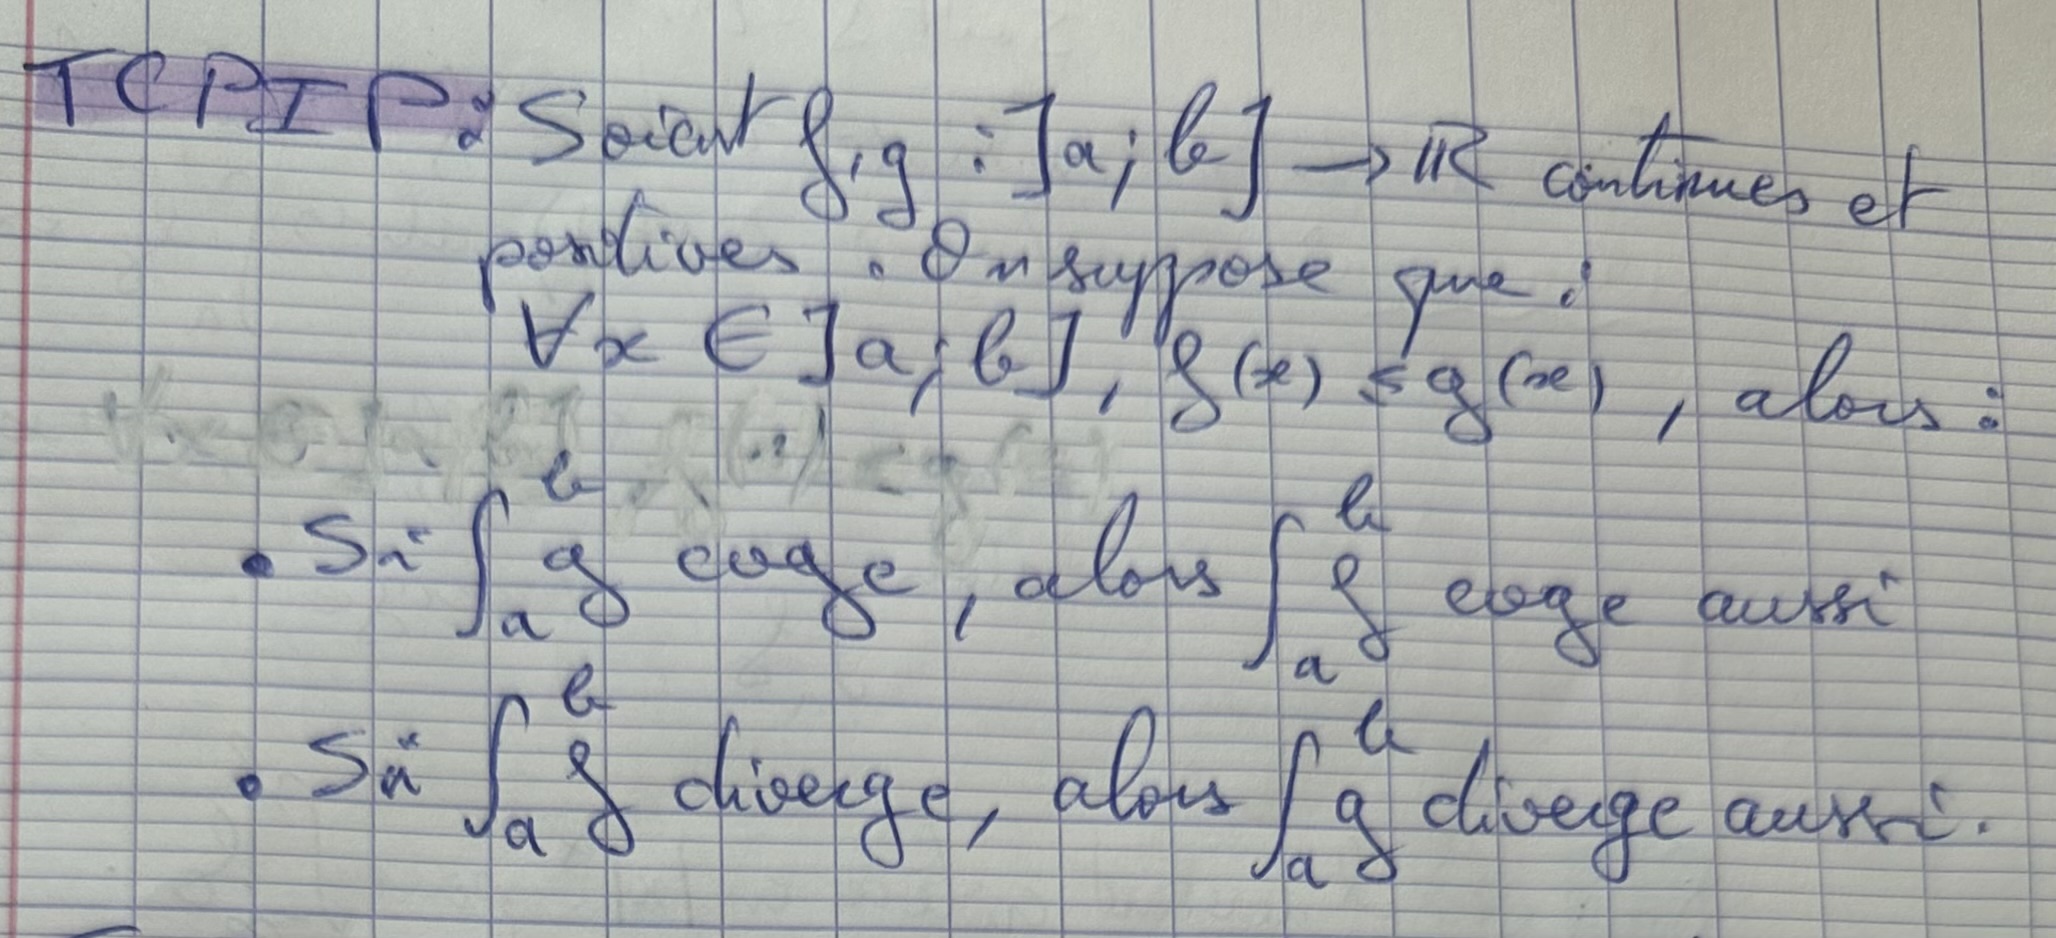 TCPIP : Soient f, g : ]a ; b] → ℝ continues et
positives. On suppose que :
∀x ∈ ]a ; b], f(x) ≤ g(x), alors :
• Si ∫_a^b g cvge, alors ∫_a^b f cvge aussi
• Si ∫_a^b f diverge, alors ∫_a^b g diverge aussi.